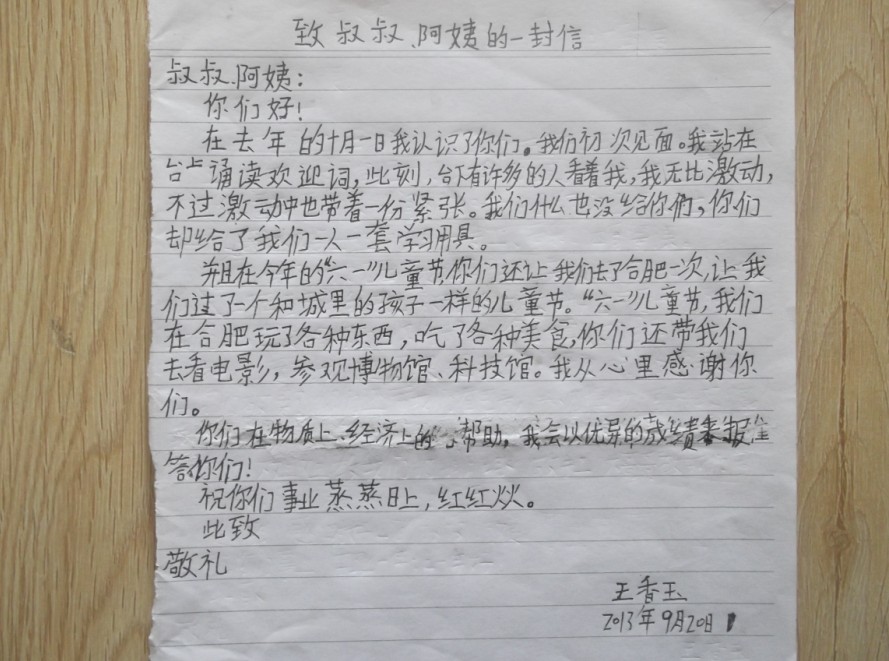 致叔叔、阿姨的一封信
叔叔、阿姨：
你们好！
在去年的十月一日我认识了你们。我们初次见面。我站在
台上诵读欢迎词，此刻，台下有许多的人看着我，我无比激动，
不过激动中也带着一份紧张。我们什么也没给你们，你们
却给了我们一人一套学习用具。
并且在今年的“六一”儿童节，你们还让我们去了合肥一次，让我
们过了一个和城里的孩子一样的儿童节。“六一”儿童节，我们
在合肥玩了各种东西，吃了各种美食，你们还带我们
去看电影，参观博物馆、科技馆。我从心里感谢你
们。
你们在物质上、经济上的帮助，我会以优异的成绩来报
答你们！
祝你们事业蒸蒸日上，红红火火。
此致
敬礼
王香玉
2013年9月20日